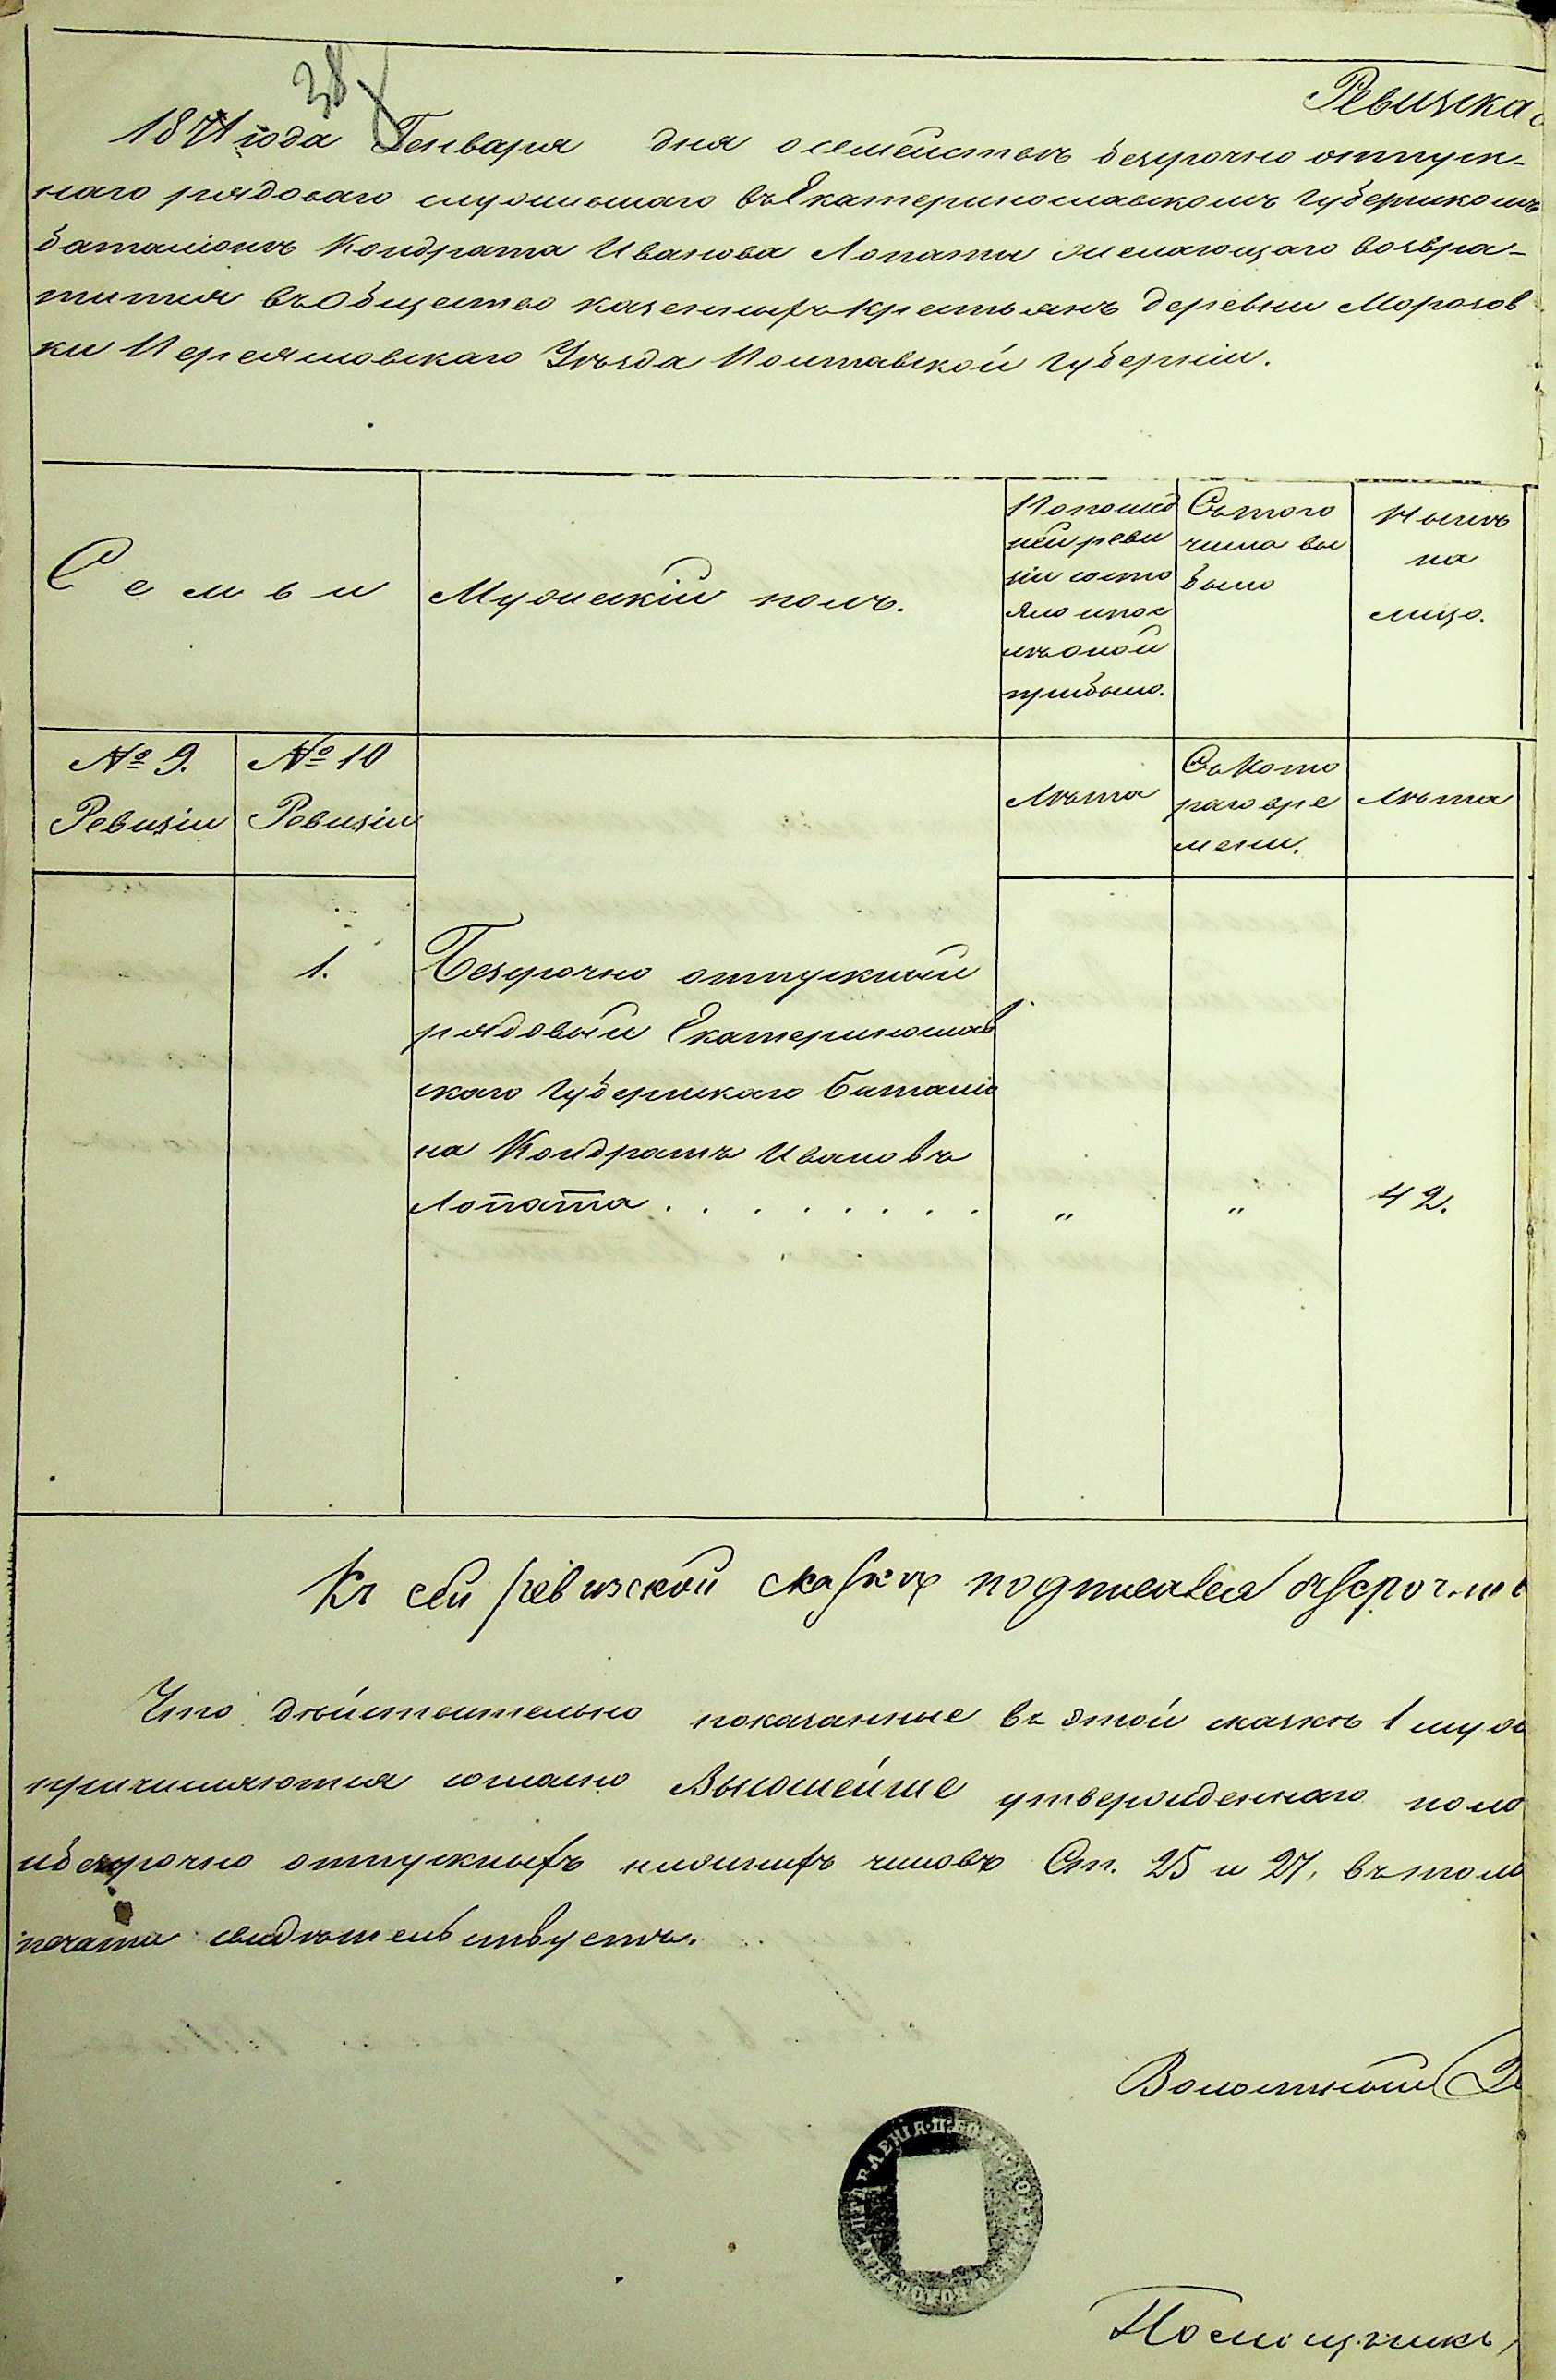 38
Ревизка
1871 года Генваря дня о семействе безсрочно отпуск-
наго рядоваго служившаго въ Екатеринославскомъ Губернскомъ
баталіонѣ Кондрата Иванова Лопаты желающаго возвра-
титься въ Общество казенныхъ крестьянъ деревни Морозов
ки Переяславскаго Уѣзда Полтавской Губерніи.
Семьи
Мужескій полъ.
По послѣд
ней реви
зіи состо
яло и пос
лѣ оной
прибыло.
Съ того
числа вы
было
Нынѣ
на
лицо.
№ 9.
Ревизіи
№ 10
Ревизіи
Лѣта
Съ кото
раго вре
мени.
Лѣта
1.
Безсрочно отпускный
рядовый Екатеринослав
скаго Губернскаго Баталіо
на Кондратъ Ивановъ
Лопата . . . . . . . . „ „ 42.
Къ сей ревизской сказкѣ подписался безсрочно
Что дѣйствительно показанные въ этой сказкѣ 1 муж
причисляются согласно Высочайше утвержденнаго поло
и безсрочно отпускныхъ нижнихъ чиновъ Ст. 25 и 27, въ том
печати свидѣтельствуетъ.
Волостный
Помощникъ